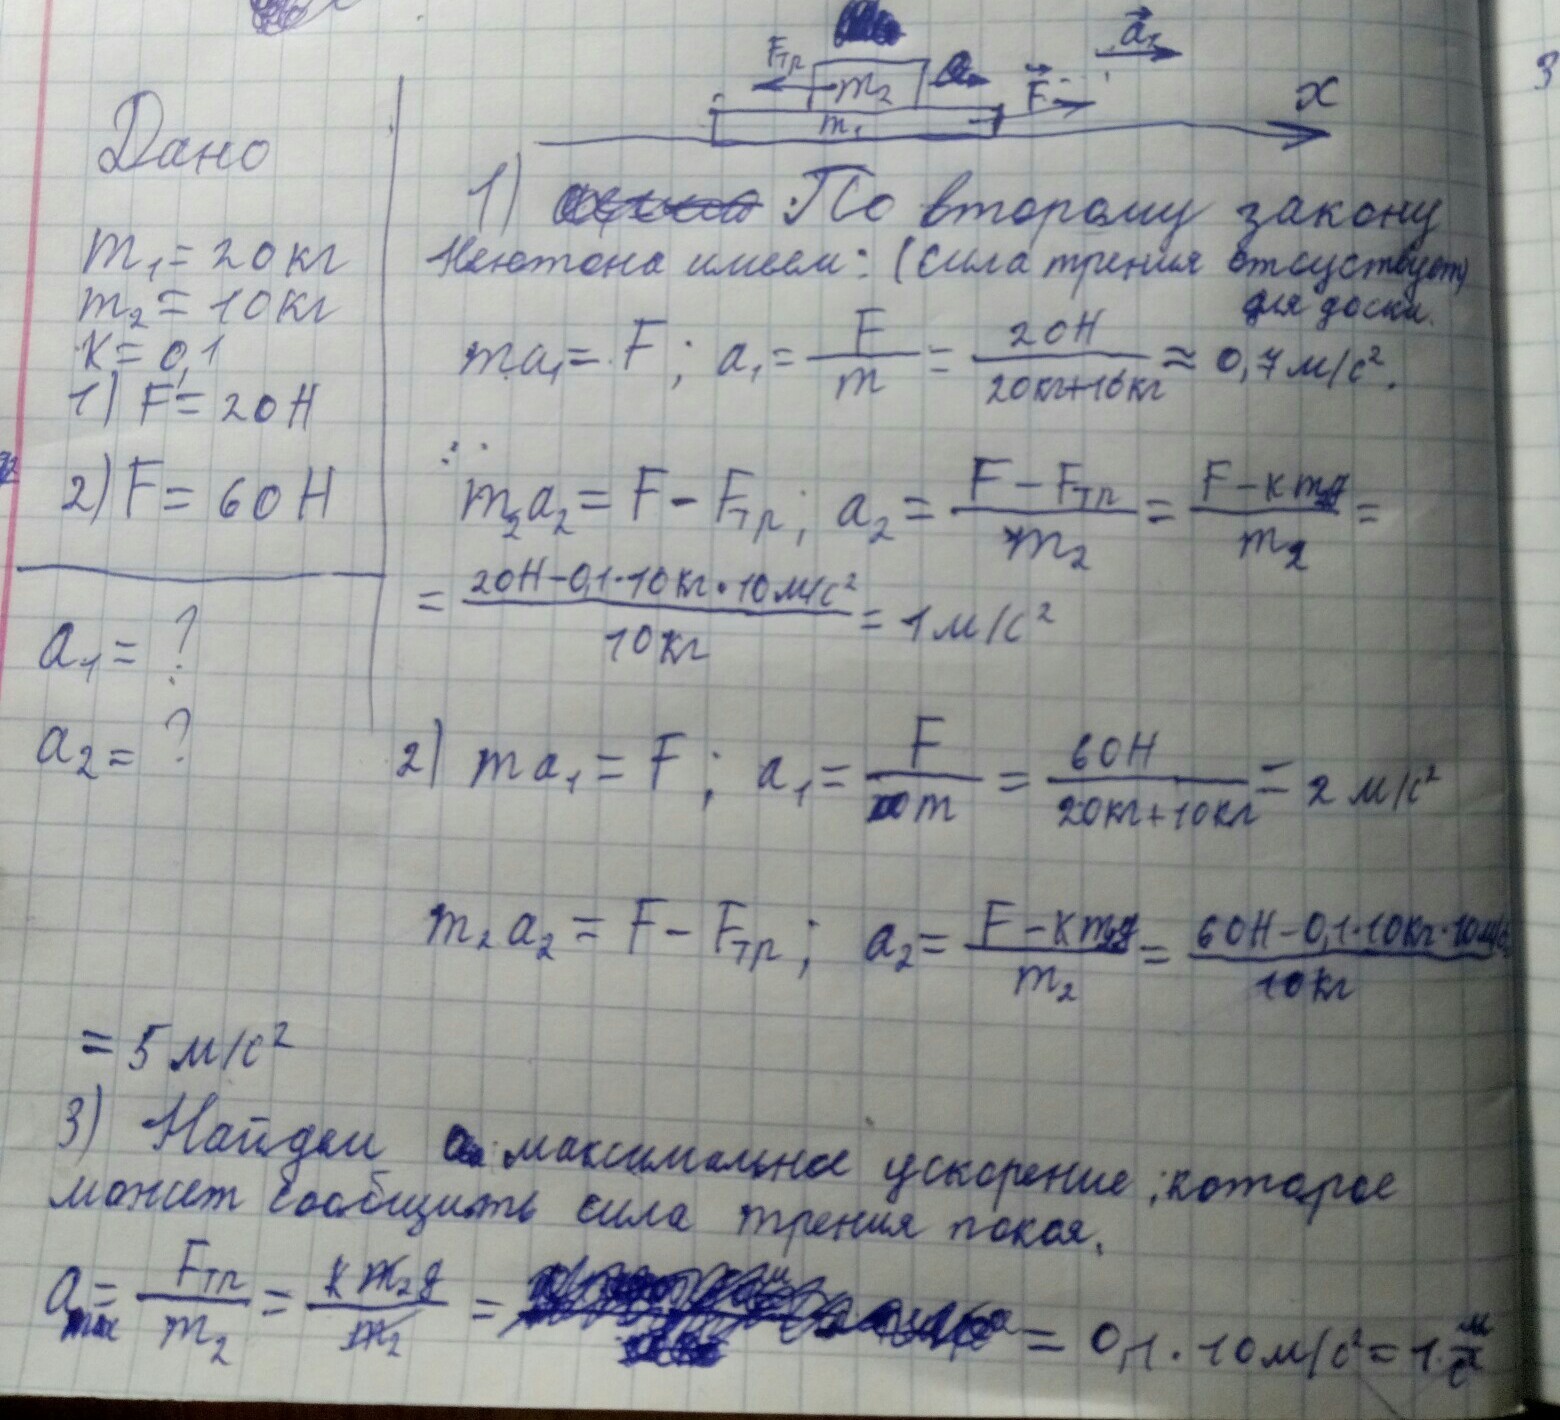 Fтр m₂ m₁ F a₁ x
3
Дано
m₁ = 20 кг
m₂ = 10 кг
k = 0,1
1) F = 20 Н
2) F = 60 Н
a₁ = ?
a₂ = ?
1) По второму закону
Ньютона имеем: (сила трения отсуствует)
для доски.
ma₁ = F; a₁ = F/m = 20Н/(20кг+10кг) ≈ 0,7 м/с².
m₂a₂ = F − Fтр; a₂ = (F − Fтр)/m₂ = (F − km₂g)/m₂ =
= (20Н−0,1·10кг·10м/с²)/10кг = 1 м/с²
2) ma₁ = F; a₁ = F/m = 60Н/(20кг+10кг) = 2 м/с²
m₂a₂ = F − Fтр; a₂ = (F − km₂g)/m₂ = (60Н−0,1·10кг·10м/с²)/10кг
= 5 м/с²
3) Найдем максимальное ускорение, которое
может сообщить сила трения покоя.
a max = Fтр/m₂ = km₂g/m₂ = = 0,1·10м/с² = 1 м/с²